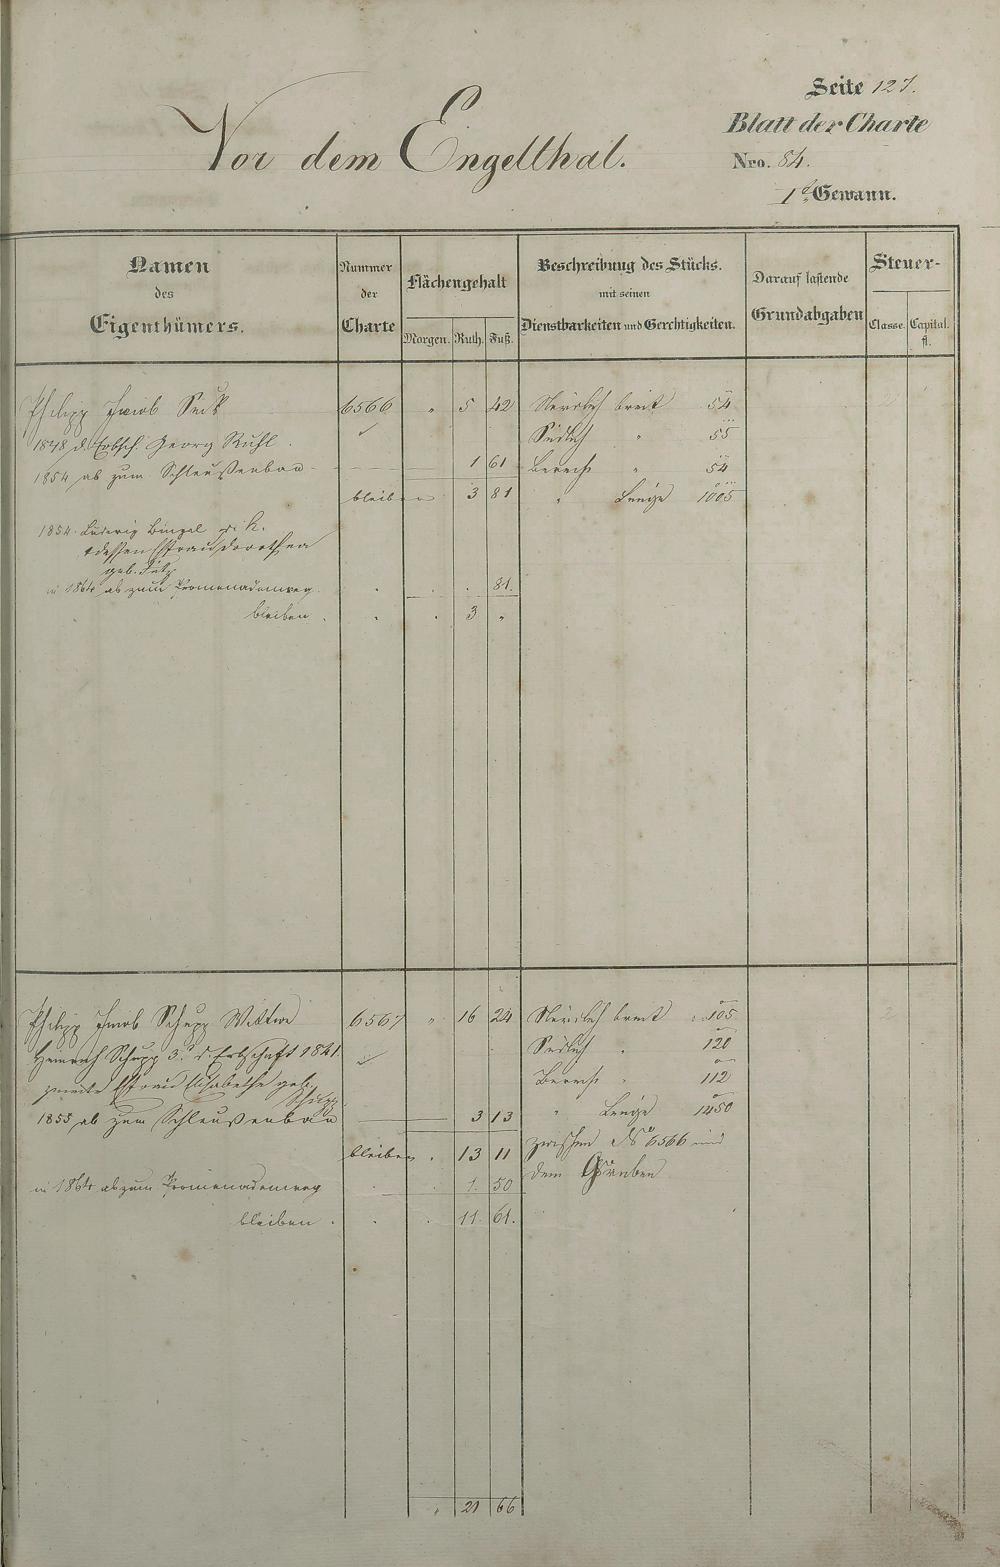 Seite 127.
Vor dem Engelthal.
Blatt der Charte
Nro. 84.
1te Gewann.
Namen des Eigenthümers.
Nummer der Charte
Flächengehalt
Morgen. Ruth. Fuß.
Beschreibung des Stücks. mit seinen Dienstbarkeiten und Gerechtigkeiten.
Darauf lastende Grundabgaben
Steuer-
Classe. Capital. fl.
Philipp Jacob Seck 6566 " 5 42 Nördlich breit 54
1848 d. Erbsch. Georg Ruhl. Südlich " 55
1854 ab zum Schleußenbau 1 61 Berech " 54
bleiben 3 81 " Länge 1005
1854. Ludwig Bingel
dessen Ehefrau Dorothea
geb.
in 1864 ab zum Promenadenweg . . . 81.
bleiben . . . 3 "
Philipp Jacob Schupp Wittwe 6567 " 16 24 Nördlich breit 105
Heinrich Schupp 3r d. Erbschaft 1841. Südlich " 120
zweite Ehefrau Elisabethe geb. Schupp Berech " 112
1855 ab zum Schleußenbau 3 13 " Länge 1450
bleiben . 13 11 zwischen No 6566 und
in 1864 ab zum Promenadenweg 1. 50 dem Graben
bleiben . . . 11. 61.
. 21 66